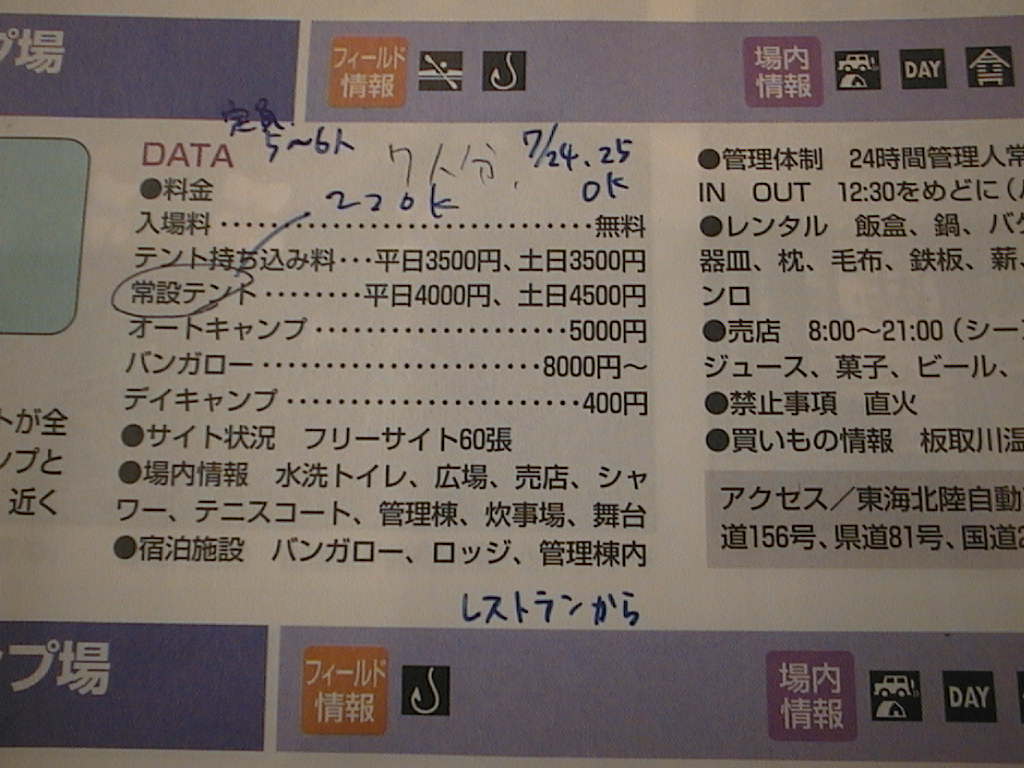 プ場
フィールド
情報
場内
情報
DAY
定員
5〜6人
7人分
7/24.25
OK
DATA
●料金
2つOK
入場料…………………………無料
テント持ち込み料…平日3500円、土日3500円
常設テント………平日4000円、土日4500円
オートキャンプ…………………5000円
バンガロー………………………8000円〜
デイキャンプ……………………400円
●サイト状況　フリーサイト60張
●場内情報　水洗トイレ、広場、売店、シャ
ワー、テニスコート、管理棟、炊事場、舞台
●宿泊施設　バンガロー、ロッジ、管理棟内
レストランから
●管理体制　24時間管理人常
IN　OUT　12:30をめどに（
●レンタル　飯盒、鍋、バケ
器皿、枕、毛布、鉄板、薪、
ンロ
●売店　8:00〜21:00（シー
ジュース、菓子、ビール、
●禁止事項　直火
●買いもの情報　板取川温
アクセス／東海北陸自動
道156号、県道81号、国道2
トが全
ンプと
近く
ンプ場
フィールド
情報
場内
情報
DAY